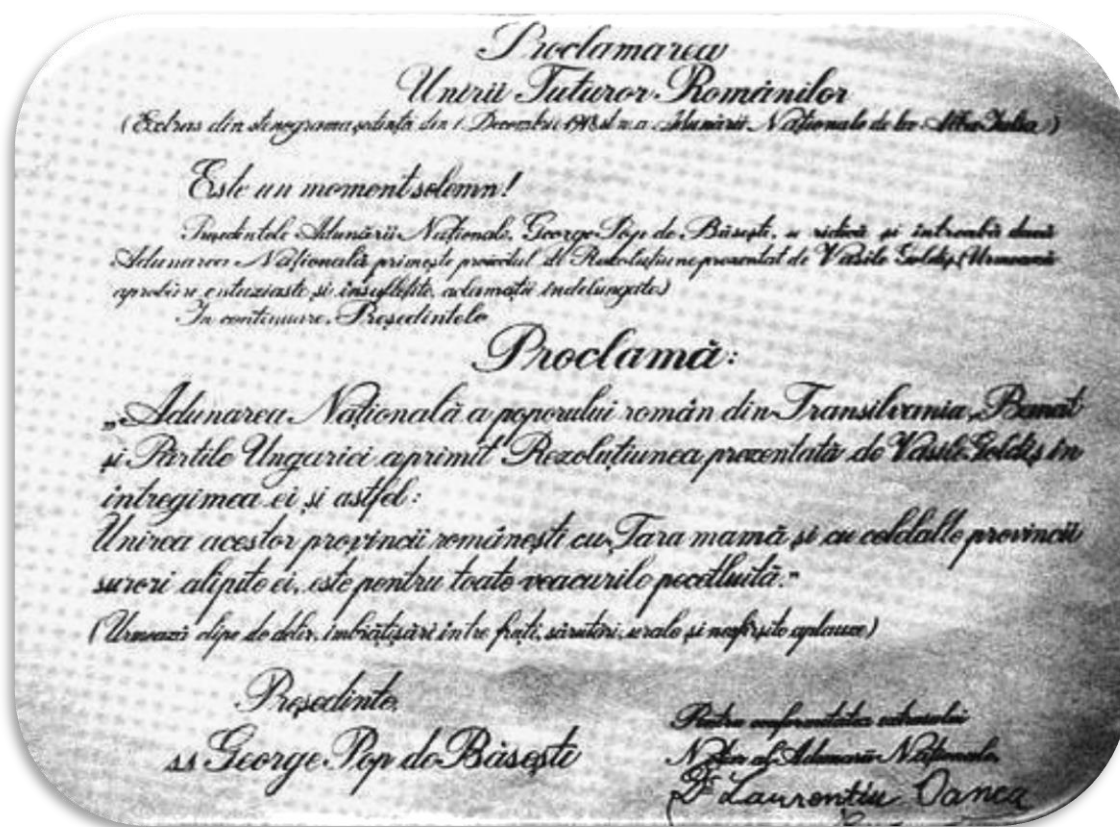 Proclamarea
Unirii Tuturor Românilor
(Extras din stenograma ședinței din 1 Decembrie 1918 st. n. a Adunării Naționale de la Alba Iulia)
Este un moment solemn!
Președintele Adunării Naționale, George Pop de Băsești, se ridică și întreabă dacă
Adunarea Națională primește proiectul de Rezoluțiune prezentat de Vasile Goldiș (Urmează
aprobări entuziaste și însuflețite, aclamații îndelungate)
In continuare, Președintele
Proclamă:
„Adunarea Națională a poporului român din Transilvania, Banat
și Părțile Ungariei a primit Rezoluțiunea prezentată de Vasile Goldiș în
intregimea ei și astfel:
Unirea acestor provincii românești cu Țara mamă și cu celelalte provincii
surori alipite ei, este pentru toate veacurile pecetluită."
(Urmează clipe de delir, îmbrățișări între frați, sărutări, urale și nesfîrșite aplauze)
Președinte,
ss George Pop de Băsești
Pentru conformitatea extrasului
Notar al Adunării Naționale,
Dr Laurentiu Oanea